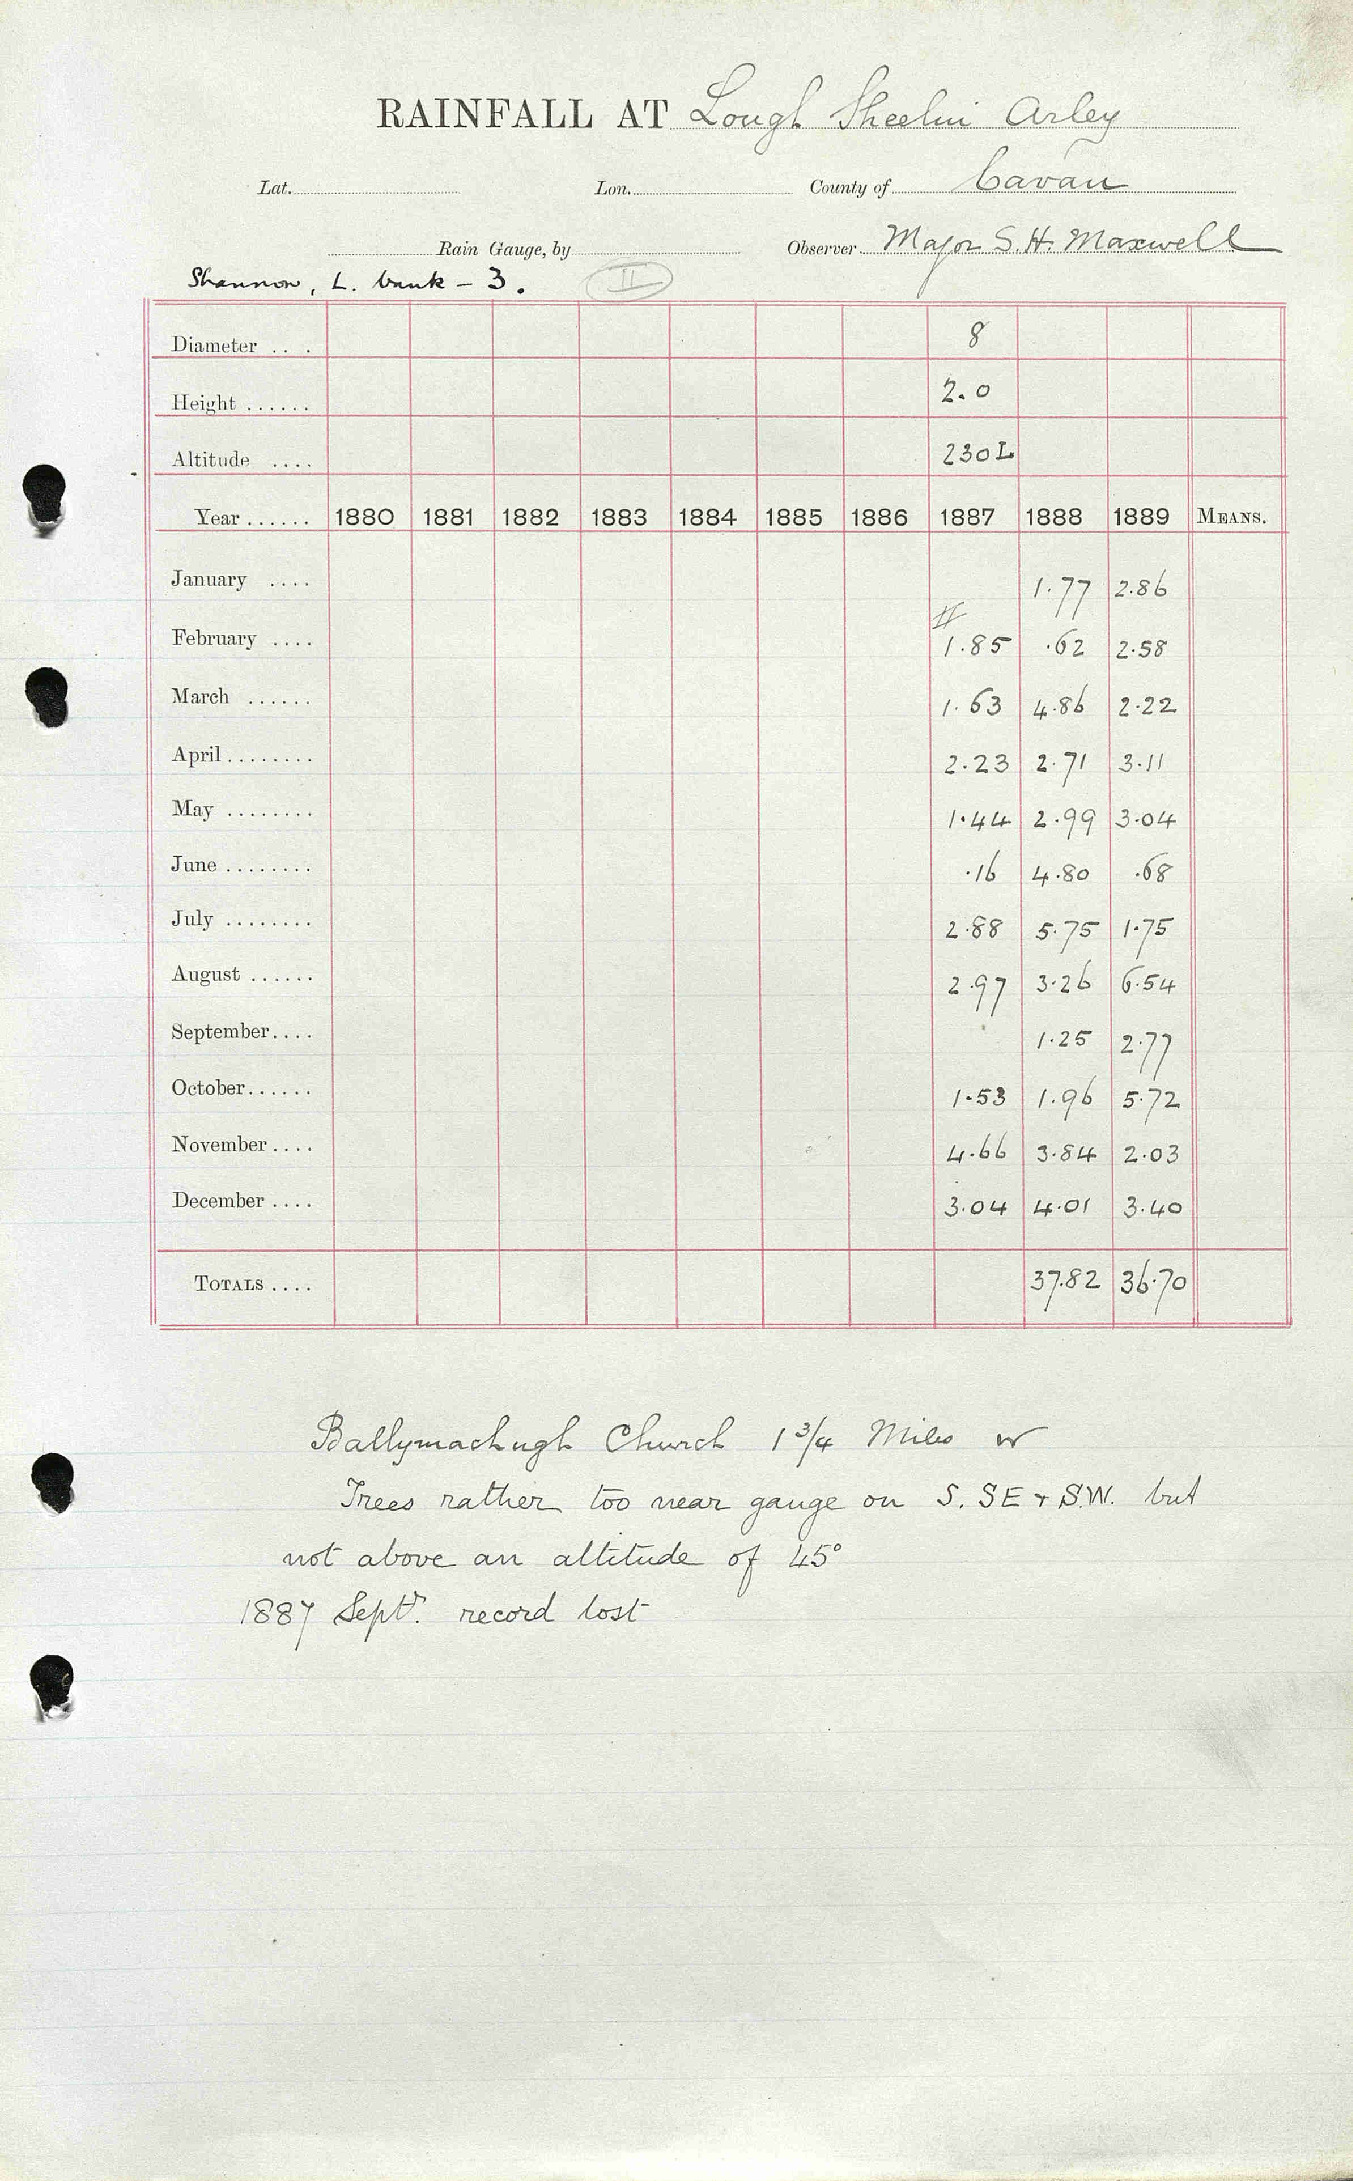 RAINFALL AT Lough Sheelin Arley
Lat. Lon. County of Cavan
Rain Gauge, by Observer Major S. H. Maxwell
Shannon, L. bank - 3. II
Diameter .. . 8
Height ...... 2.0
Altitude .... 230 L
Year ...... 1880 1881 1882 1883 1884 1885 1886 1887 1888 1889 MEANS.
January .... 1.77 2.86
II
February .... 1.85 .62 2.58
March ...... 1.63 4.86 2.22
April ........ 2.23 2.71 3.11
May ........ 1.44 2.99 3.04
June ........ .16 4.80 .68
July ........ 2.88 5.75 1.75
August ...... 2.97 3.26 6.54
September.... 1.25 2.77
October...... 1.53 1.96 5.72
November .... 4.66 3.84 2.03
December .... 3.04 4.01 3.40
TOTALS .... 37.82 36.70
Ballymachugh Church 1 3/4 Miles W
Trees rather too near gauge on S. SE + S.W. but
not above an altitude of 45°
1887 Septr. record lost